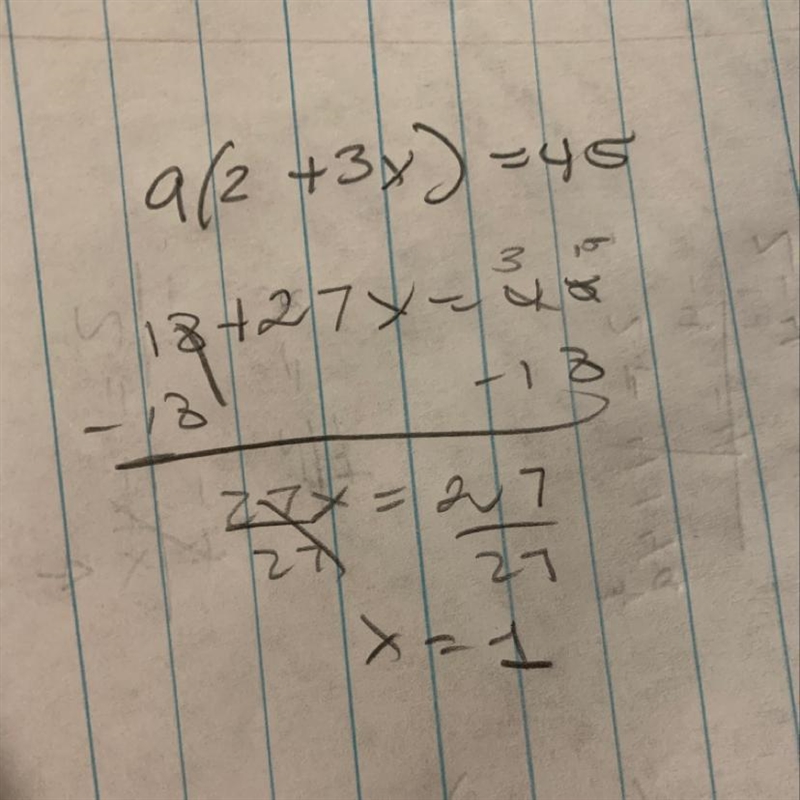 9(2 + 3x) = 45
18 + 27x = 45
- 18 - 18
27x = 27
27 27
x = 1